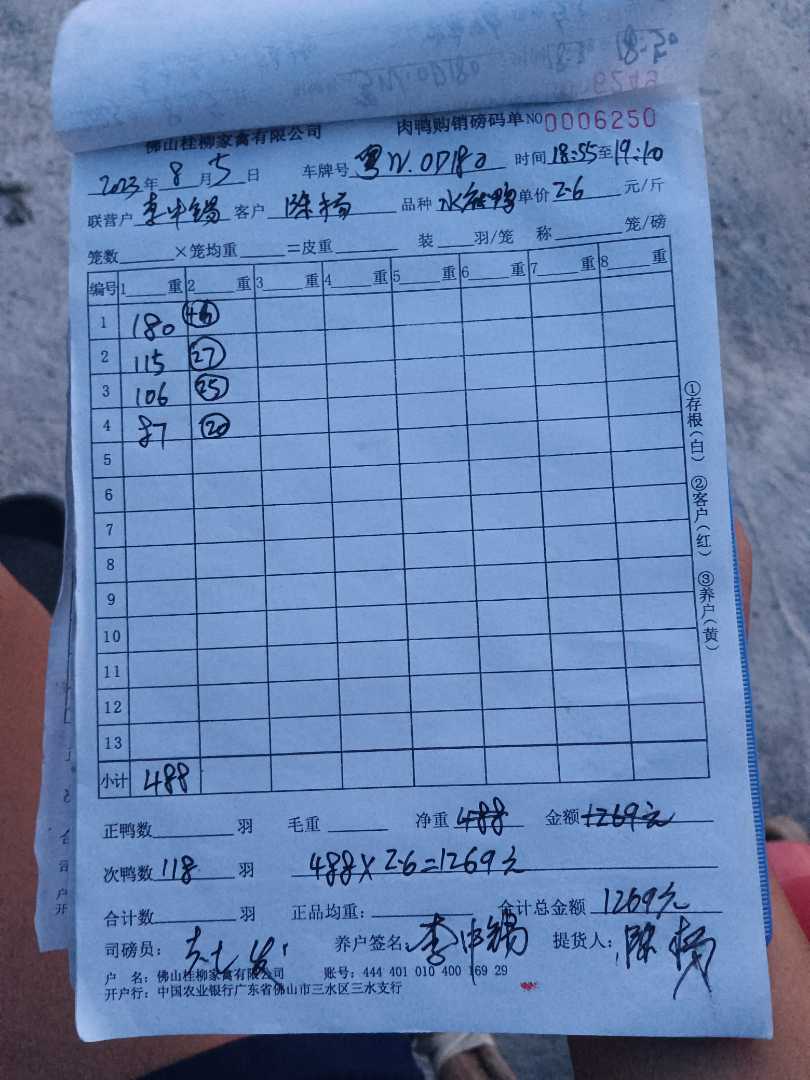 佛山桂柳家禽有限公司 肉鸭购销磅码单 NO 0006250
2023年8月5日 车牌号 粤W.0D180 时间 18:55至19:10
联营户 李中锡 客户 陈杨 品种 水 鸭 单价 2.6 元/斤
笼数 ×笼均重 =皮重 装 羽/笼 称 笼/磅
编号 1 重 2 重 3 重 4 重 5 重 6 重 7 重 8 重
1 180 46
2 115 27
3 106 25
4 87 20
5
6
7
8
9
10
11
12
13
小计 488
①存根(白) ②客户(红) ③养户(黄)
正鸭数 羽 毛重 净重 488 金额 1269元
次鸭数 118 羽 488×2.6=1269元
合计数 羽 正品均重: 合计总金额 1269元
司磅员: 养户签名: 李中锡 提货人: 陈杨
户 名: 佛山桂柳家禽有限公司 账号: 444 401 010 400 169 29
开户行: 中国农业银行广东省佛山市三水区三水支行